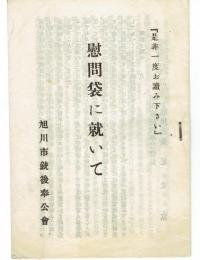 『是非一度お讀み下さい』
慰問袋に就いて
旭川市銃後奉公會